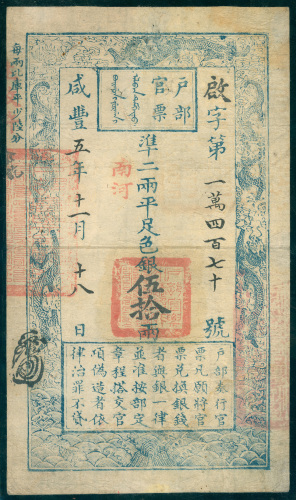 戶部
官票
啟字第一萬四百七十號
準二兩平足色銀伍拾兩
南河
咸豐五年十一月十八日
每兩比庫平少陸分
戶部奏行官
票凡願將官
票兌換銀錢
者與銀一律
並准按部定
章程搭交官
項偽造者依
律治罪不貸